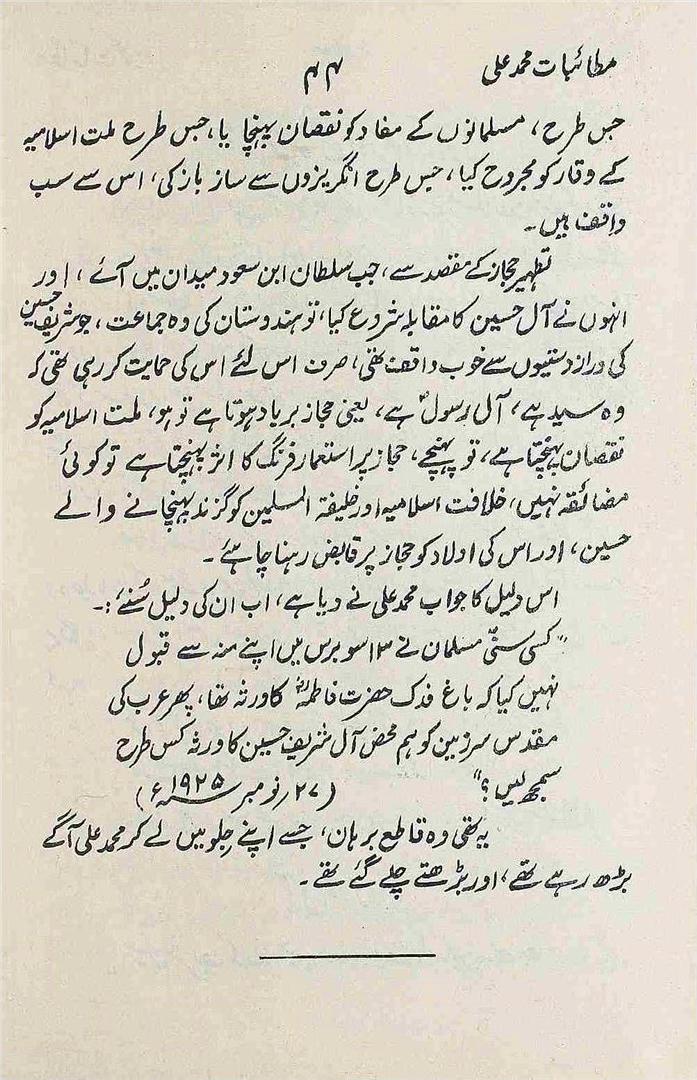 مطائبات محمد علی
۴۴
جس طرح، مسلمانوں کے مفاد کو نقصان پہنچا یا، جس طرح ملت اسلامیہ
کے وقار کو مجروح کیا، جس طرح انگریزوں سے ساز باز کی، اس سے سب
واقف ہیں۔
تطہیر حجاز کے مقصد سے، جب سلطان ابن سعود میدان میں آئے، اور
انہوں نے آل حسین کا مقابلہ شروع کیا، تو ہندوستان کی وہ جماعت، جو شریف حسین
کی دراز دستیوں سے خوب واقف تھی، صرف اس لئے اس کی حمایت کر رہی تھی کہ
وہ سید ہے، آل رسولؐ ہے، یعنی حجاز برباد ہوتا ہے تو ہو، ملت اسلامیہ کو
نقصان پہنچتا ہے، تو پہنچے، حجاز پر استعمار فرنگ کا اثر پہنچتا ہے تو کوئی
مضائقہ نہیں، خلافت اسلامیہ اور خلیفۃ المسلمین کو گزند پہنچانے والے
حسین، اور اس کی اولاد کو حجاز پر قابض رہنا چاہئے۔
اس دلیل کا جواب محمد علی نے دیا ہے، اب ان کی دلیل سُنئے:۔
"کسی سنّی مسلمان نے ۱۳ سو برس میں اپنے منہ سے قبول
نہیں کیا کہ باغ فدک حضرت فاطمہؓ کا ورثہ تھا، پھر عرب کی
مقدس سرزمین کو ہم محض آل شریف حسین کا ورثہ کس طرح
سمجھ لیں؟" (۲۷؍ نومبر ۱۹۲۵ء)
یہ تھی وہ قاطع برہان، جسے اپنے جلو میں لے کر محمد علی آگے
بڑھ رہے تھے، اور بڑھتے چلے گئے تھے۔